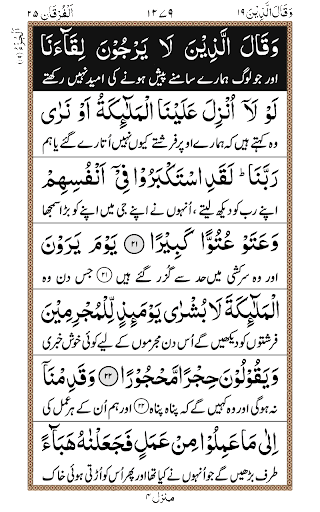 وَقَالَ الَّذِيْنَ ١٩ ١٢٧٩ اَلْفُرْقَان ٢٥
اَلْجُزْءُ (١٩)
وَقَالَ الَّذِيْنَ لَا يَرْجُوْنَ لِقَآءَنَا
اور جو لوگ ہمارے سامنے پیش ہونے کی امید نہیں رکھتے
لَوْ لَآ اُنْزِلَ عَلَيْنَا الْمَلٰٓئِكَةُ اَوْ نَرٰى
وہ کہتے ہیں کہ ہمارے اوپر فرشتے کیوں نہیں اُتارے گئے یا ہم
رَبَّنَا ؕ لَقَدِ اسْتَكْبَرُوْا فِيْٓ اَنْفُسِهِمْ
اپنے رب کو دیکھ لیتے، اُنہوں نے اپنے جی میں اپنے کو بڑا سمجھا
وَعَتَوْ عُتُوًّا كَبِيْرًا ﴿٢١﴾ يَوْمَ يَرَوْنَ
اور وہ سرکشی میں حد سے گزر گئے ہیں (٢١) جس دن وہ
الْمَلٰٓئِكَةَ لَا بُشْرٰى يَوْمَئِذٍ لِّلْمُجْرِمِيْنَ
فرشتوں کو دیکھیں گے اُس دن مجرموں کے لیے کوئی خوش خبری
وَيَقُوْلُوْنَ حِجْرًا مَّحْجُوْرًا ﴿٢٢﴾ وَقَدِمْنَآ
نہ ہوگی اور وہ کہیں گے کہ پناہ پناہ (٢٢) اور ہم اُن کے ہر عمل کی
اِلٰى مَا عَمِلُوْا مِنْ عَمَلٍ فَجَعَلْنٰهُ هَبَآءً
طرف بڑھیں گے جو اُنہوں نے کیا تھا اور پھر اُس کو اُڑتی ہوئی خاک
منزل ۴